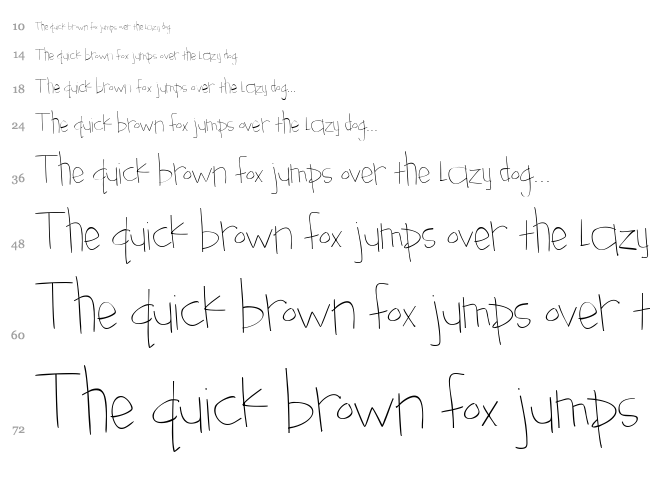 10 The quick brown fox jumps over the Lazy dog
14 The quick brown fox jumps over the Lazy dog
18 The quick brown fox jumps over the Lazy dog...
24 The quick brown fox jumps over the Lazy dog...
36 The quick brown fox jumps over the Lazy dog...
48 The quick brown fox jumps over the Lazy
60 The quick brown fox jumps over t
72 The quick brown fox jumps